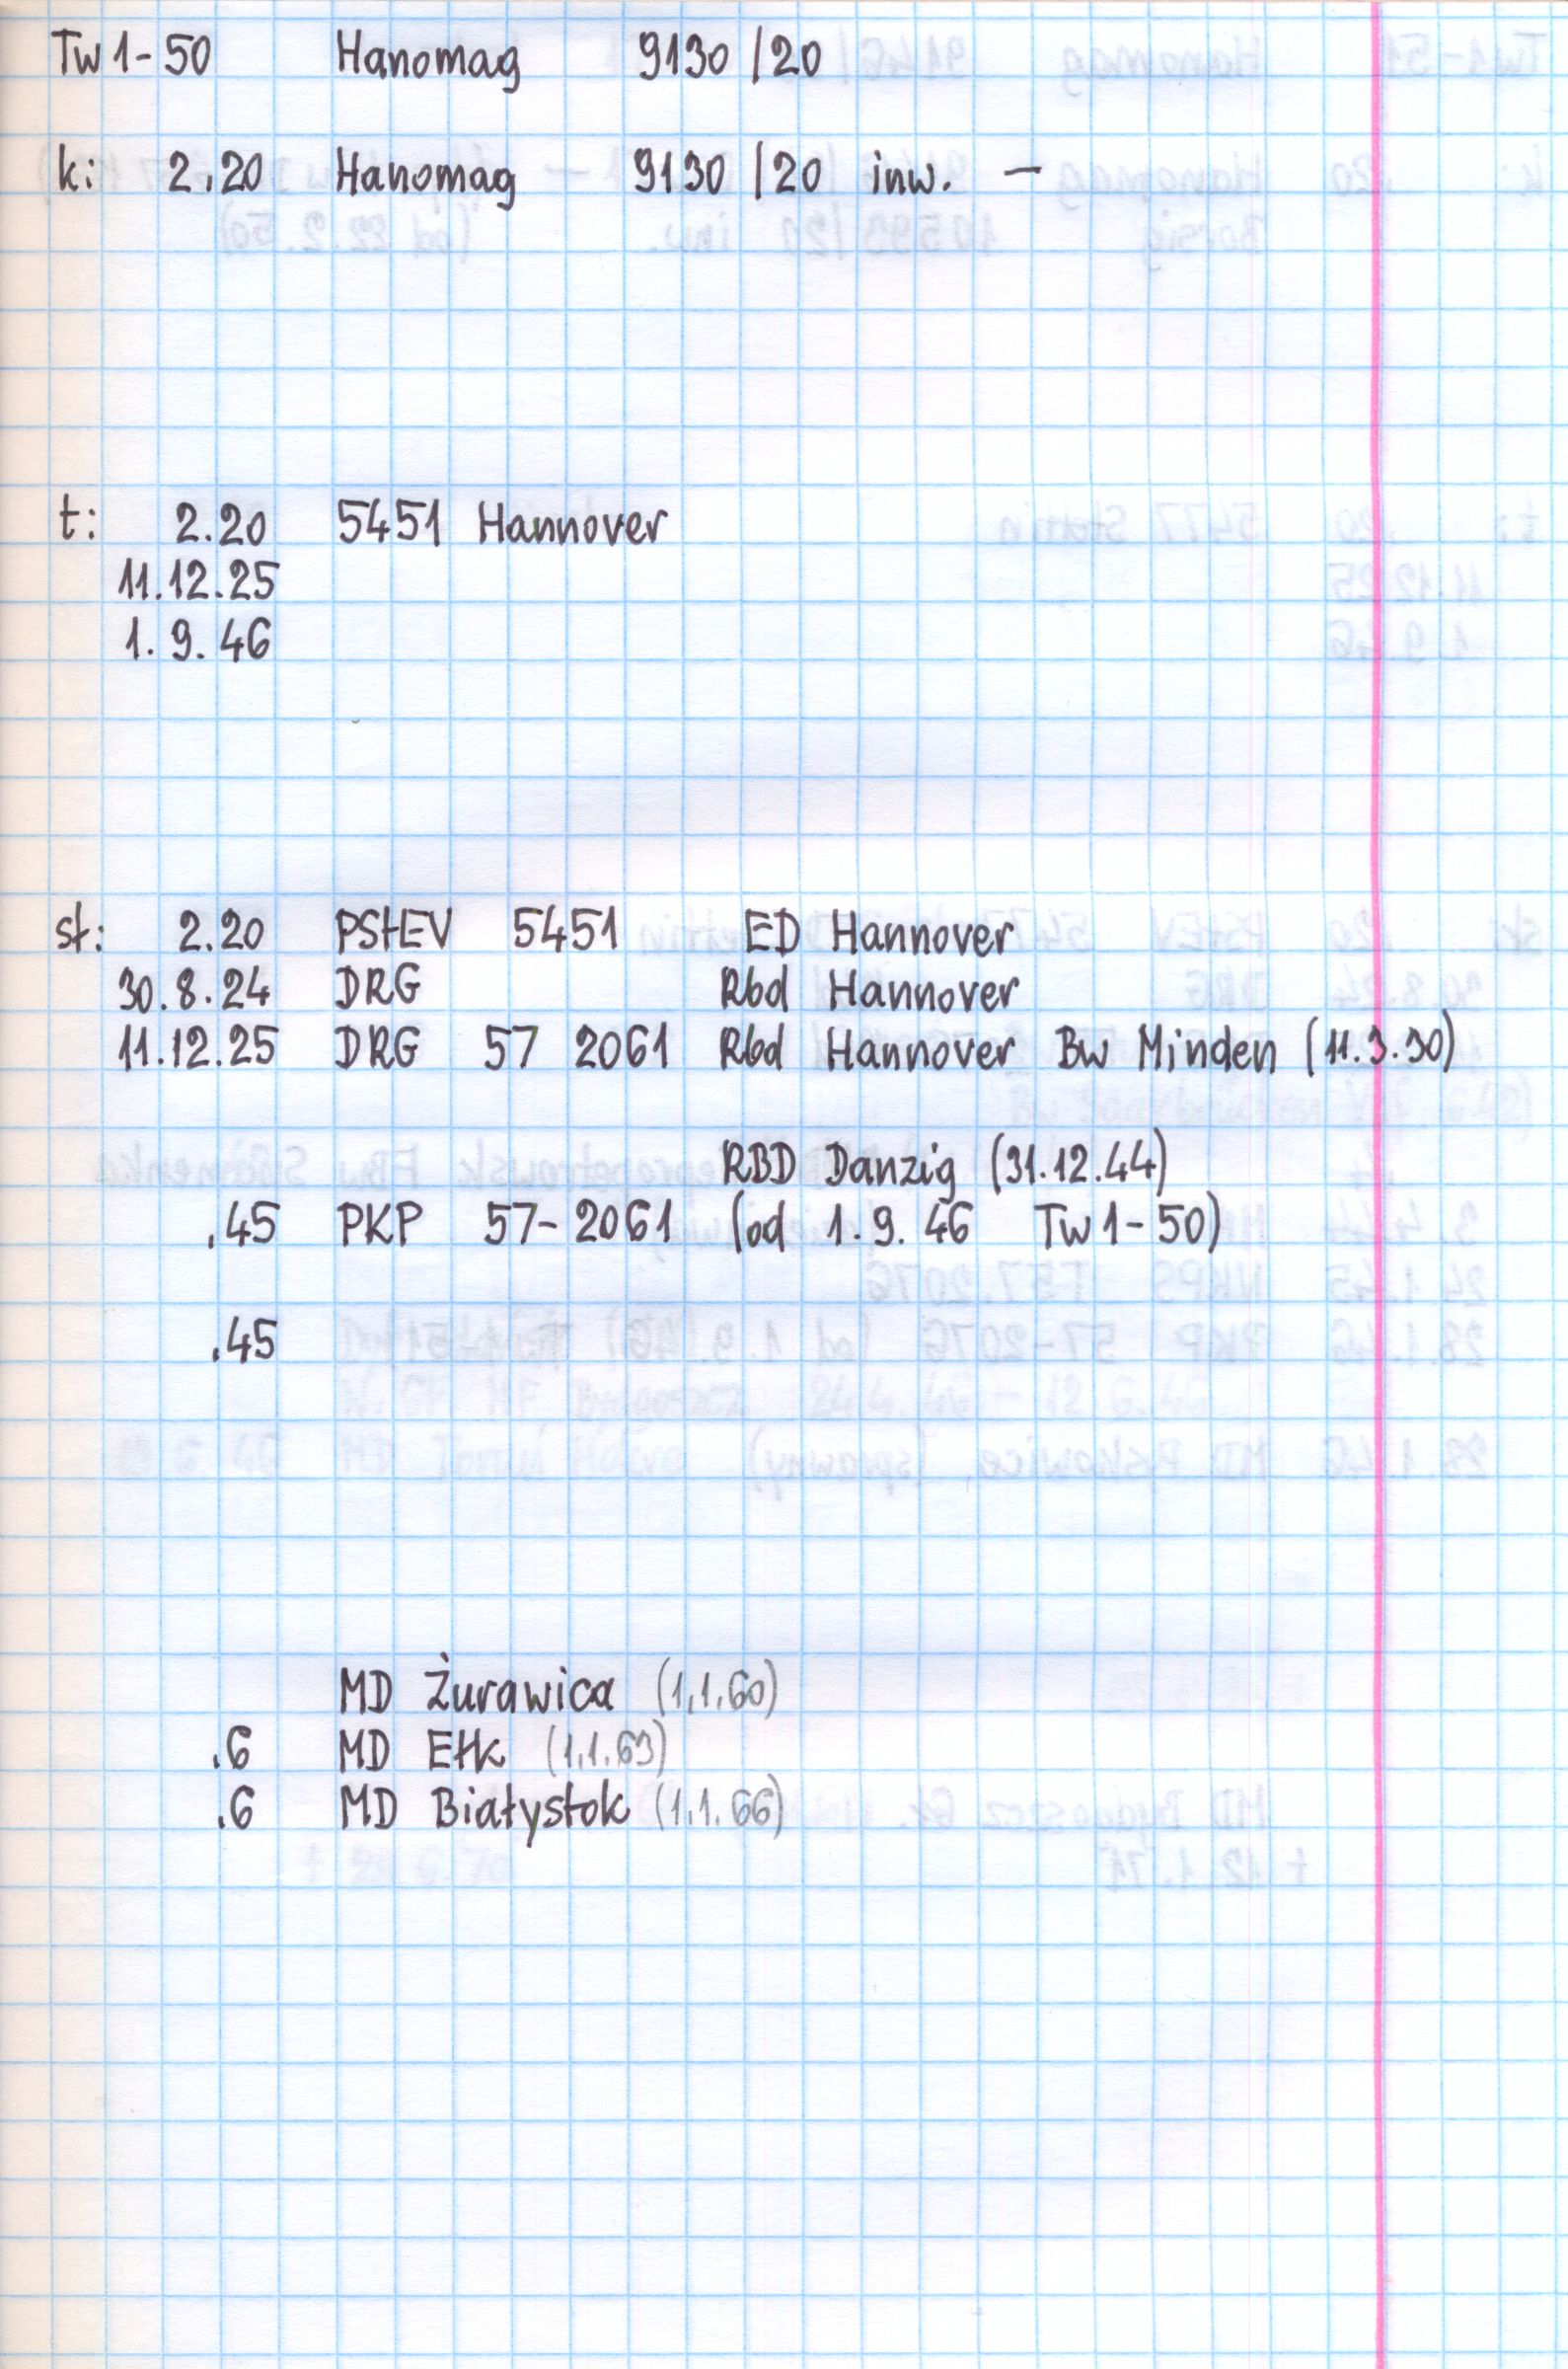 Tw 1-50 Hanomag 9130 /20
k: 2.20 Hanomag 9130 /20 inw. —
t: 2.20 5451 Hannover
11.12.25
1.9.46
st: 2.20 PStEV 5451 ED Hannover
30.8.24 DRG Rbd Hannover
11.12.25 DRG 57 2061 Rbd Hannover Bw Minden (11.3.30)
RBD Danzig (31.12.44)
.45 PKP 57-2061 (od 1.9.46 Tw 1-50)
.45
MD Żurawica (1.1.60)
.6 MD Ełk (1.1.63)
.6 MD Białystok (1.1.66)